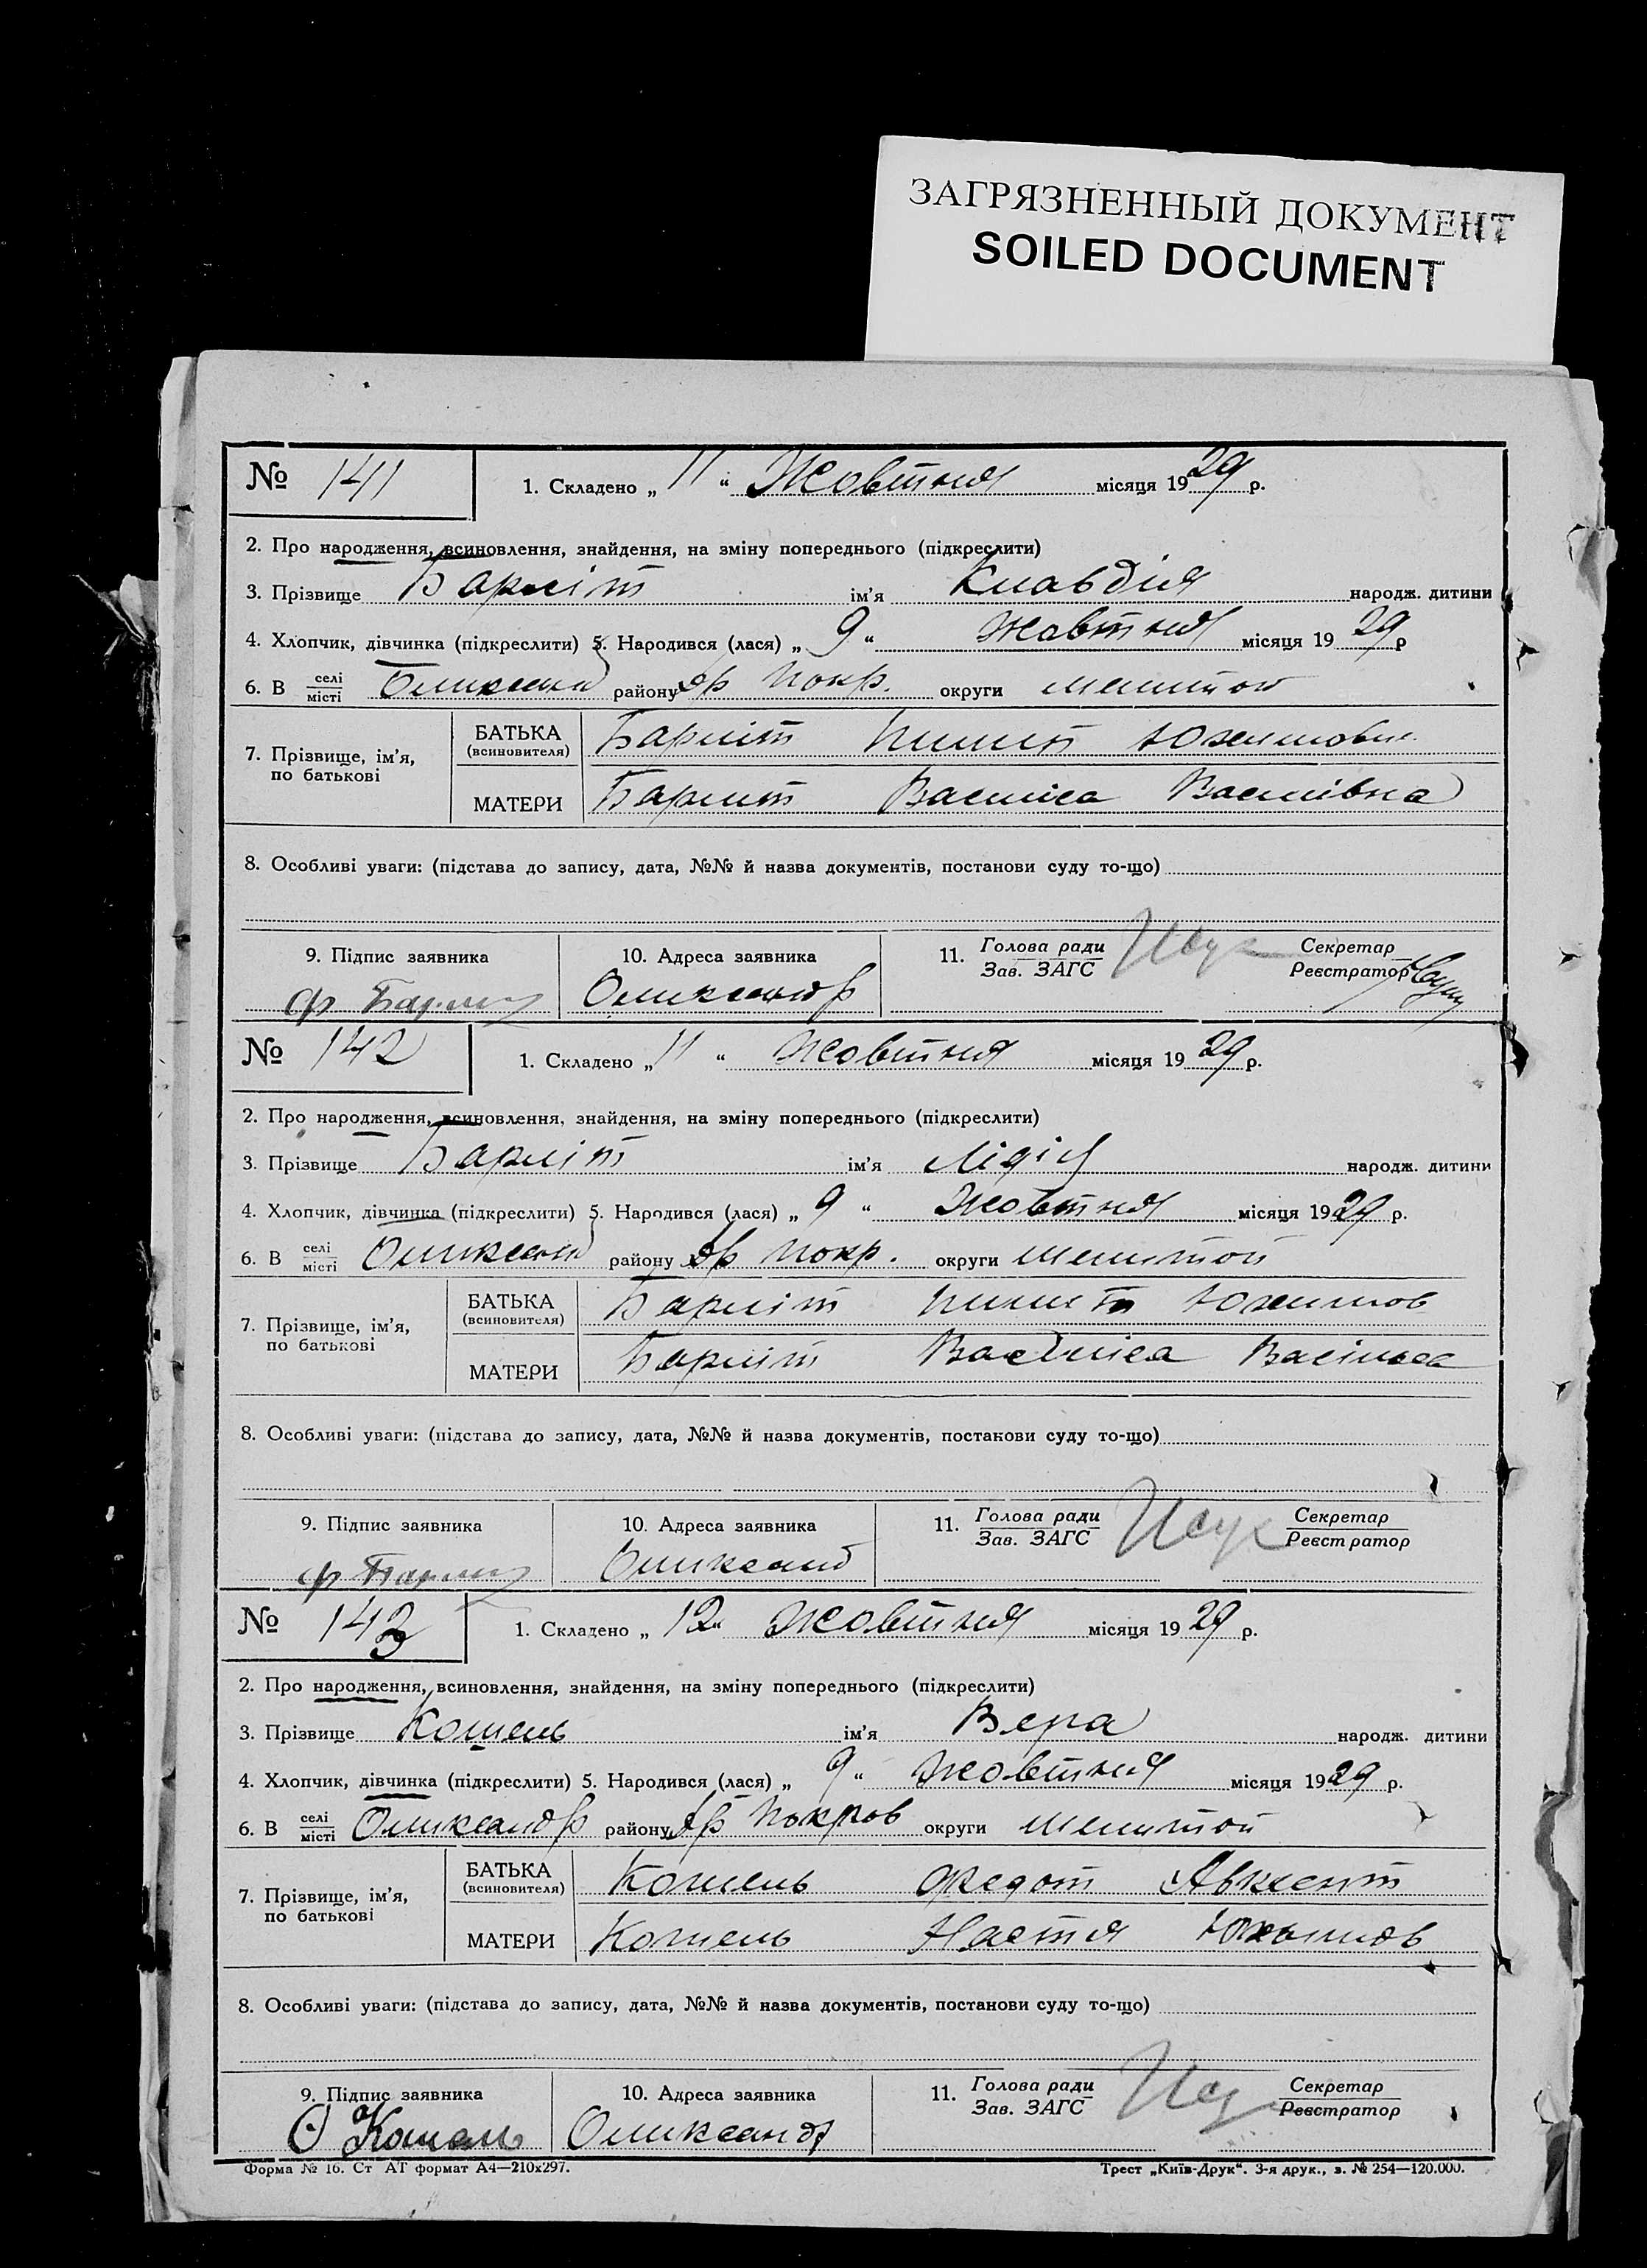 ЗАГРЯЗНЕННЫЙ ДОКУМЕНТ
SOILED DOCUMENT
№ 141
1. Складено „ 11 “ Жовтня місяця 1929 р.
2. Про народження, всиновлення, знайдення, на зміну попереднього (підкреслити)
3. Прізвище Барліт ім'я Клавдія народж. дитини
4. Хлопчик, дівчинка (підкреслити) 5. Народився (лася) „ 9 “ жовтня місяця 1929 р
6. В селі/місті району округи
7. Прізвище, ім'я, по батькові
БАТЬКА (всиновителя) Барліт
МАТЕРИ Барліт
8. Особливі уваги: (підстава до запису, дата, №№ й назва документів, постанови суду то-що)
9. Підпис заявника 10. Адреса заявника 11. Голова ради/Зав. ЗАГС Секретар/Реєстратор
№ 142
1. Складено „ 11 “ Жовтня місяця 1929 р.
2. Про народження, всиновлення, знайдення, на зміну попереднього (підкреслити)
3. Прізвище Барліт ім'я Лідія народж. дитини
4. Хлопчик, дівчинка (підкреслити) 5. Народився (лася) „ 9 “ Жовтня місяця 1929 р.
6. В селі/місті Оликсанд району покр. округи
7. Прізвище, ім'я, по батькові
БАТЬКА (всиновителя) Барліт
МАТЕРИ Барліт
8. Особливі уваги: (підстава до запису, дата, №№ й назва документів, постанови суду то-що)
9. Підпис заявника 10. Адреса заявника 11. Голова ради/Зав. ЗАГС Секретар/Реєстратор
Оликсанд
№ 143
1. Складено „ 12 “ Жовтня місяця 1929 р.
2. Про народження, всиновлення, знайдення, на зміну попереднього (підкреслити)
3. Прізвище Кошель ім'я Вера народж. дитини
4. Хлопчик, дівчинка (підкреслити) 5. Народився (лася) „ 9 “ Жовтня місяця 1929 р.
6. В селі/місті Оликсандр району Покров округи
7. Прізвище, ім'я, по батькові
БАТЬКА (всиновителя) Кошель Федот Авксент
МАТЕРИ Кошель Настя
8. Особливі уваги: (підстава до запису, дата, №№ й назва документів, постанови суду то-що)
9. Підпис заявника 10. Адреса заявника 11. Голова ради/Зав. ЗАГС Секретар/Реєстратор
Кошель Оликсандр
Форма № 16. Ст АТ формат А4—210х297. Трест „Київ-Друк“. 3-я друк., з. № 254—120.000.